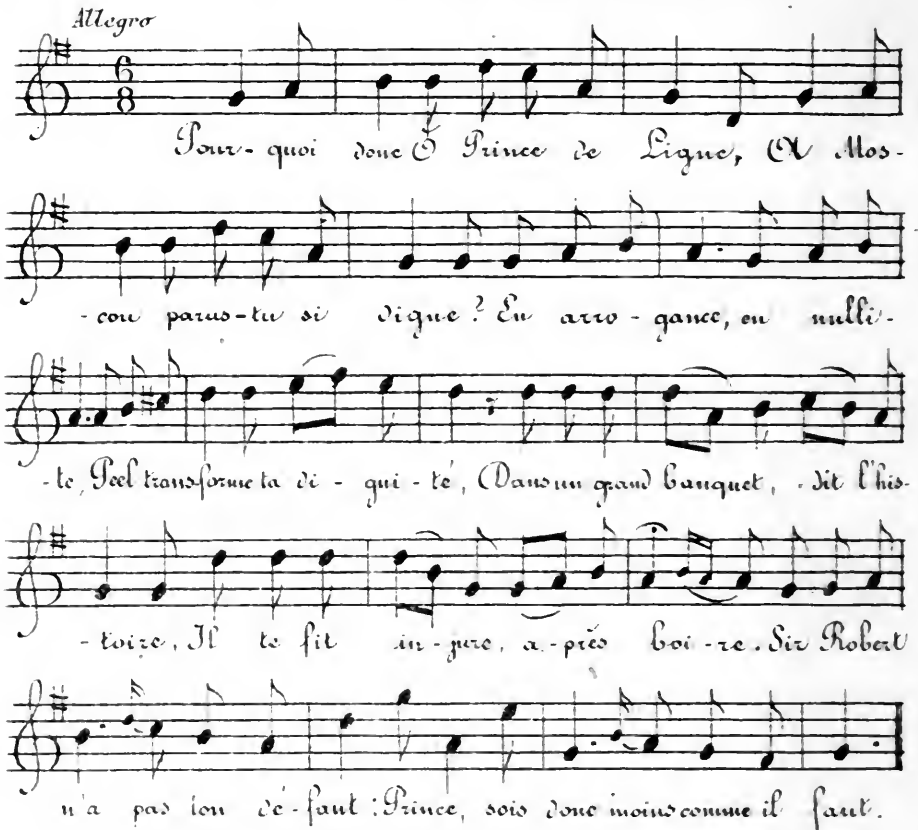 Allegro
6
8
Pour-quoi donc Ô Prince de Ligne, A Mos-
-cou parus-tu si digne? En arro-gance, en nulli-
-te, Peel transforme ta di-gni-té, Dans un grand banquet, -dit l'his-
-toire, Il te fit in-jure, a-près boi-re. Sir Robert
n'a pas ton dé-faut: Prince, sois donc moins comme il faut.